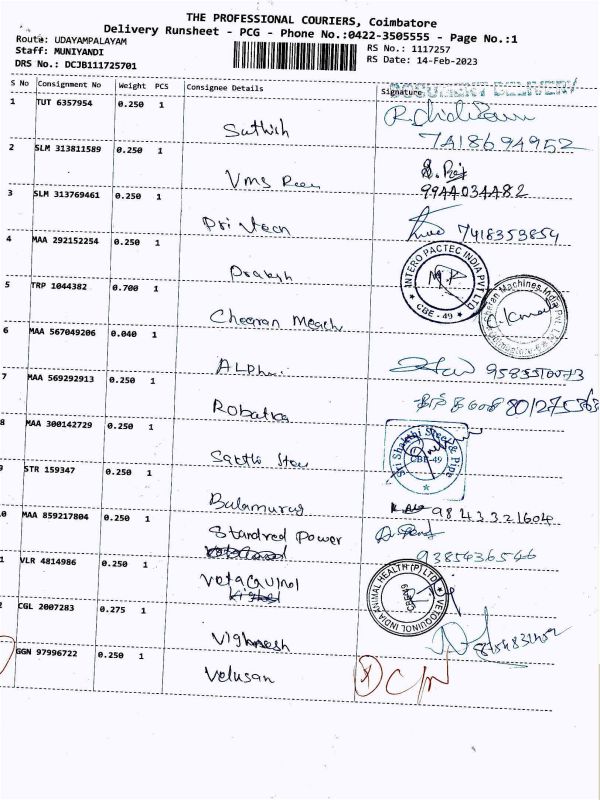 THE PROFESSIONAL COURIERS, Coimbatore
Delivery Runsheet - PCG - Phone No.:0422-3505555 - Page No.:1
Route: UDAYAMPALAYAM
Staff: MUNIYANDI
DRS No.: DCJB111725701
RS No.: 1117257
RS Date: 14-Feb-2023
S No Consignment No Weight PCS Consignee Details Signature
DOCUMENT DELIVERY
1 TUT 6357954 0.250 1 Sathish
2 SLM 313811589 0.250 1 Vms
9944034482
3 SLM 313769461 0.250 1 Pri tech 7418353854
4 MAA 292152254 0.250 1 Prakash
INTERO PACTEC INDIA PVT LTD
CBE - 49
5 TRP 1044382 0.700 1 Cheeran Mech
Cheran Machines India Pvt. Ltd
6 MAA 567049206 0.040 1 ALPhai
7 MAA 569292913 0.250 1 Robatra
8 MAA 300142729 0.250 1 Sakthi Stee
Sri Shakthi Steel & Pipe
CBE-49
9 STR 159347 0.250 1 Balamurug 9843321604
0 MAA 859217804 0.250 1 Standred Power
9385436546
1 VLR 4814986 0.250 1 Vetaquinol
VETOQUINOL INDIA ANIMAL HEALTH (P) LTD
2 CGL 2007283 0.275 1 Vighnesh
GGN 97996722 0.250 1 Velusan